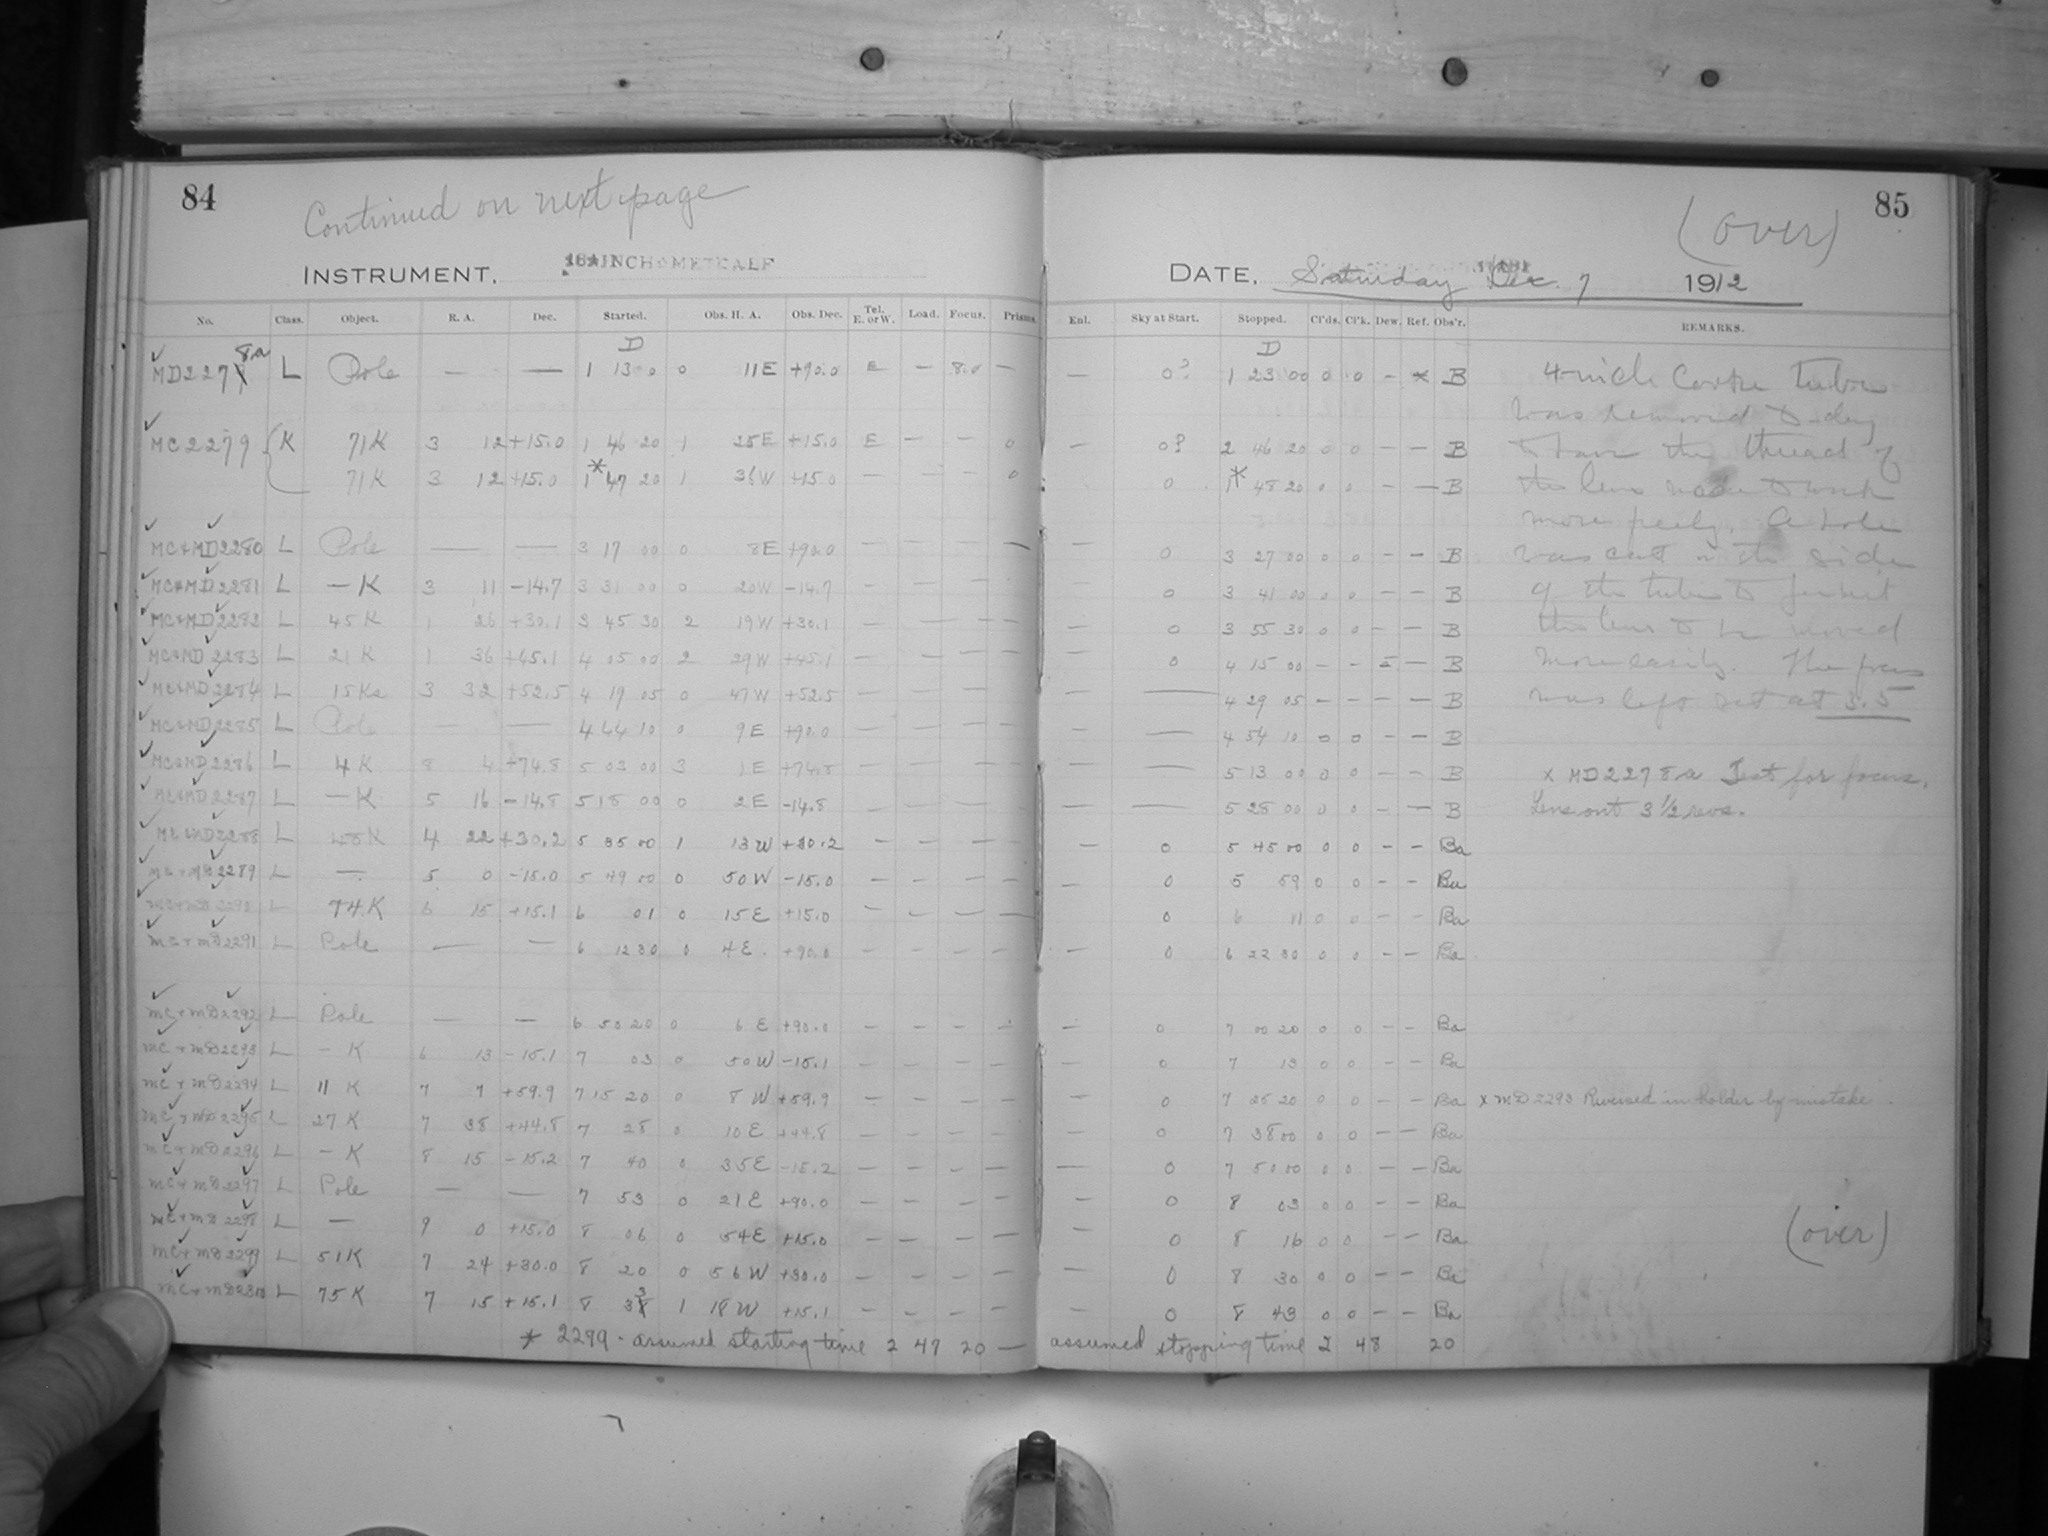 84
Continued on next page
85
(over)
INSTRUMENT. 16 INCH METCALF
DATE. Saturday Dec. 7 1912
No. Class. Object. R. A. Dec. Started. Obs. H. A. Obs. Dec. Tel. E. or W. Load. Focus. Prisms. Enl. Sky at Start. Stopped. Cl'ds. Cl'k. Dew. Ref. Obs'r. REMARKS.
D D
MD2278a L Pole — — 1 13 00 0 11E +90.0 E — 8.0 — — 0? 1 23 00 0 0 — * B 4-inch Cooke tube
was removed to-day
MC2279 K 71K 3 12 +15.0 1 46 20 1 25E +15.0 E — — 0 — 0? 2 46 20 0 0 — — B to have the thread of
71K 3 12 +15.0 1* 47 20 1 36W +15.0 — — — 0 0 1* 48 20 0 0 — — B the lens made to work
more freely. A hole
MC+MD2280 L Pole — — 3 17 00 0 8E +90.0 — — — — — 0 3 27 00 0 0 — — B was cut in the side
MC+MD2281 L — K 3 11 -14.7 3 31 00 0 20W -14.7 — — — — 0 3 41 00 0 0 — — B of the tube to permit
MC+MD2282 L 45K 1 26 +30.1 3 45 30 2 19W +30.1 — — — — — 0 3 55 30 0 0 — — B the lens to be moved
MC+MD2283 L 21K 1 36 +45.1 4 05 00 2 39W +45.1 — — — — — 0 4 15 00 — — — — B more easily. The focus
MC+MD2284 L 15K 3 32 +52.5 4 19 05 0 47W +52.5 — — — — — — 4 29 05 — — — — B was left set at 3.5
MC+MD2285 L Pole — — 4 44 10 0 9E +90.0 — — — — — — 4 54 10 0 0 — — B
MC+MD2286 L 4K 8 4 +74.8 5 03 00 3 1E +74.8 — — — — — — 5 13 00 0 0 — — B x MD2278a Test for focus.
MC+MD2287 L — K 5 16 -14.8 5 18 00 0 2E -14.8 — — — — — — 5 28 00 0 0 — — B Lens out 3 1/2 revs.
MC+MD2288 L 48K 4 22 +30.2 5 35 00 1 13W +30.2 — — — — — 0 5 45 00 0 0 — — Ba
MC+MD2289 L — 5 0 -15.0 5 49 00 0 50W -15.0 — — — — — 0 5 59 0 0 — — Ba
MC+MD2290 L 74K 6 15 +15.1 6 01 0 15E +15.0 — — — — 0 6 11 0 0 — — Ba
MC+MD2291 L Pole — — 6 12 30 0 4E. +90.0 — — — — — 0 6 22 30 0 0 — — Ba
MC+MD2292 L Pole — — 6 50 20 0 6E +90.0 — — — — — 0 7 00 20 0 0 — — Ba
MC+MD2293 L — K 6 13 -15.1 7 03 0 50W -15.1 — — — — — 0 7 13 0 0 — — Ba
MC+MD2294 L 11 K 7 7 +59.9 7 15 20 0 8W +59.9 — — — — — 0 7 25 20 0 0 — — Ba x MD2293 Reversed in holder by mistake.
MC+MD2295 L 27 K 7 38 +44.8 7 28 0 10E +44.8 — — — — — 0 7 38 00 0 0 — — Ba
MC+MD2296 L — K 8 15 -15.2 7 40 0 35E -15.2 — — — — — 0 7 50 00 0 0 — — Ba
MC+MD2297 L Pole — — 7 53 0 21E +90.0 — — — — — 0 8 03 0 0 — — Ba
MC+MD2298 L — 9 0 +15.0 8 06 0 54E +15.0 — — — — — 0 8 16 0 0 — — Ba
(over)
MC+MD2299 L 51K 7 24 +30.0 8 20 0 56W +30.0 — — — — — 0 8 30 0 0 — — Ba
MC+MD L 75K 7 15 +15.1 8 33 1 18W +15.1 — — — — — 0 8 43 0 0 — — Ba
* 2299 - assumed starting time 2 47 20 — assumed stopping time 2 48 20